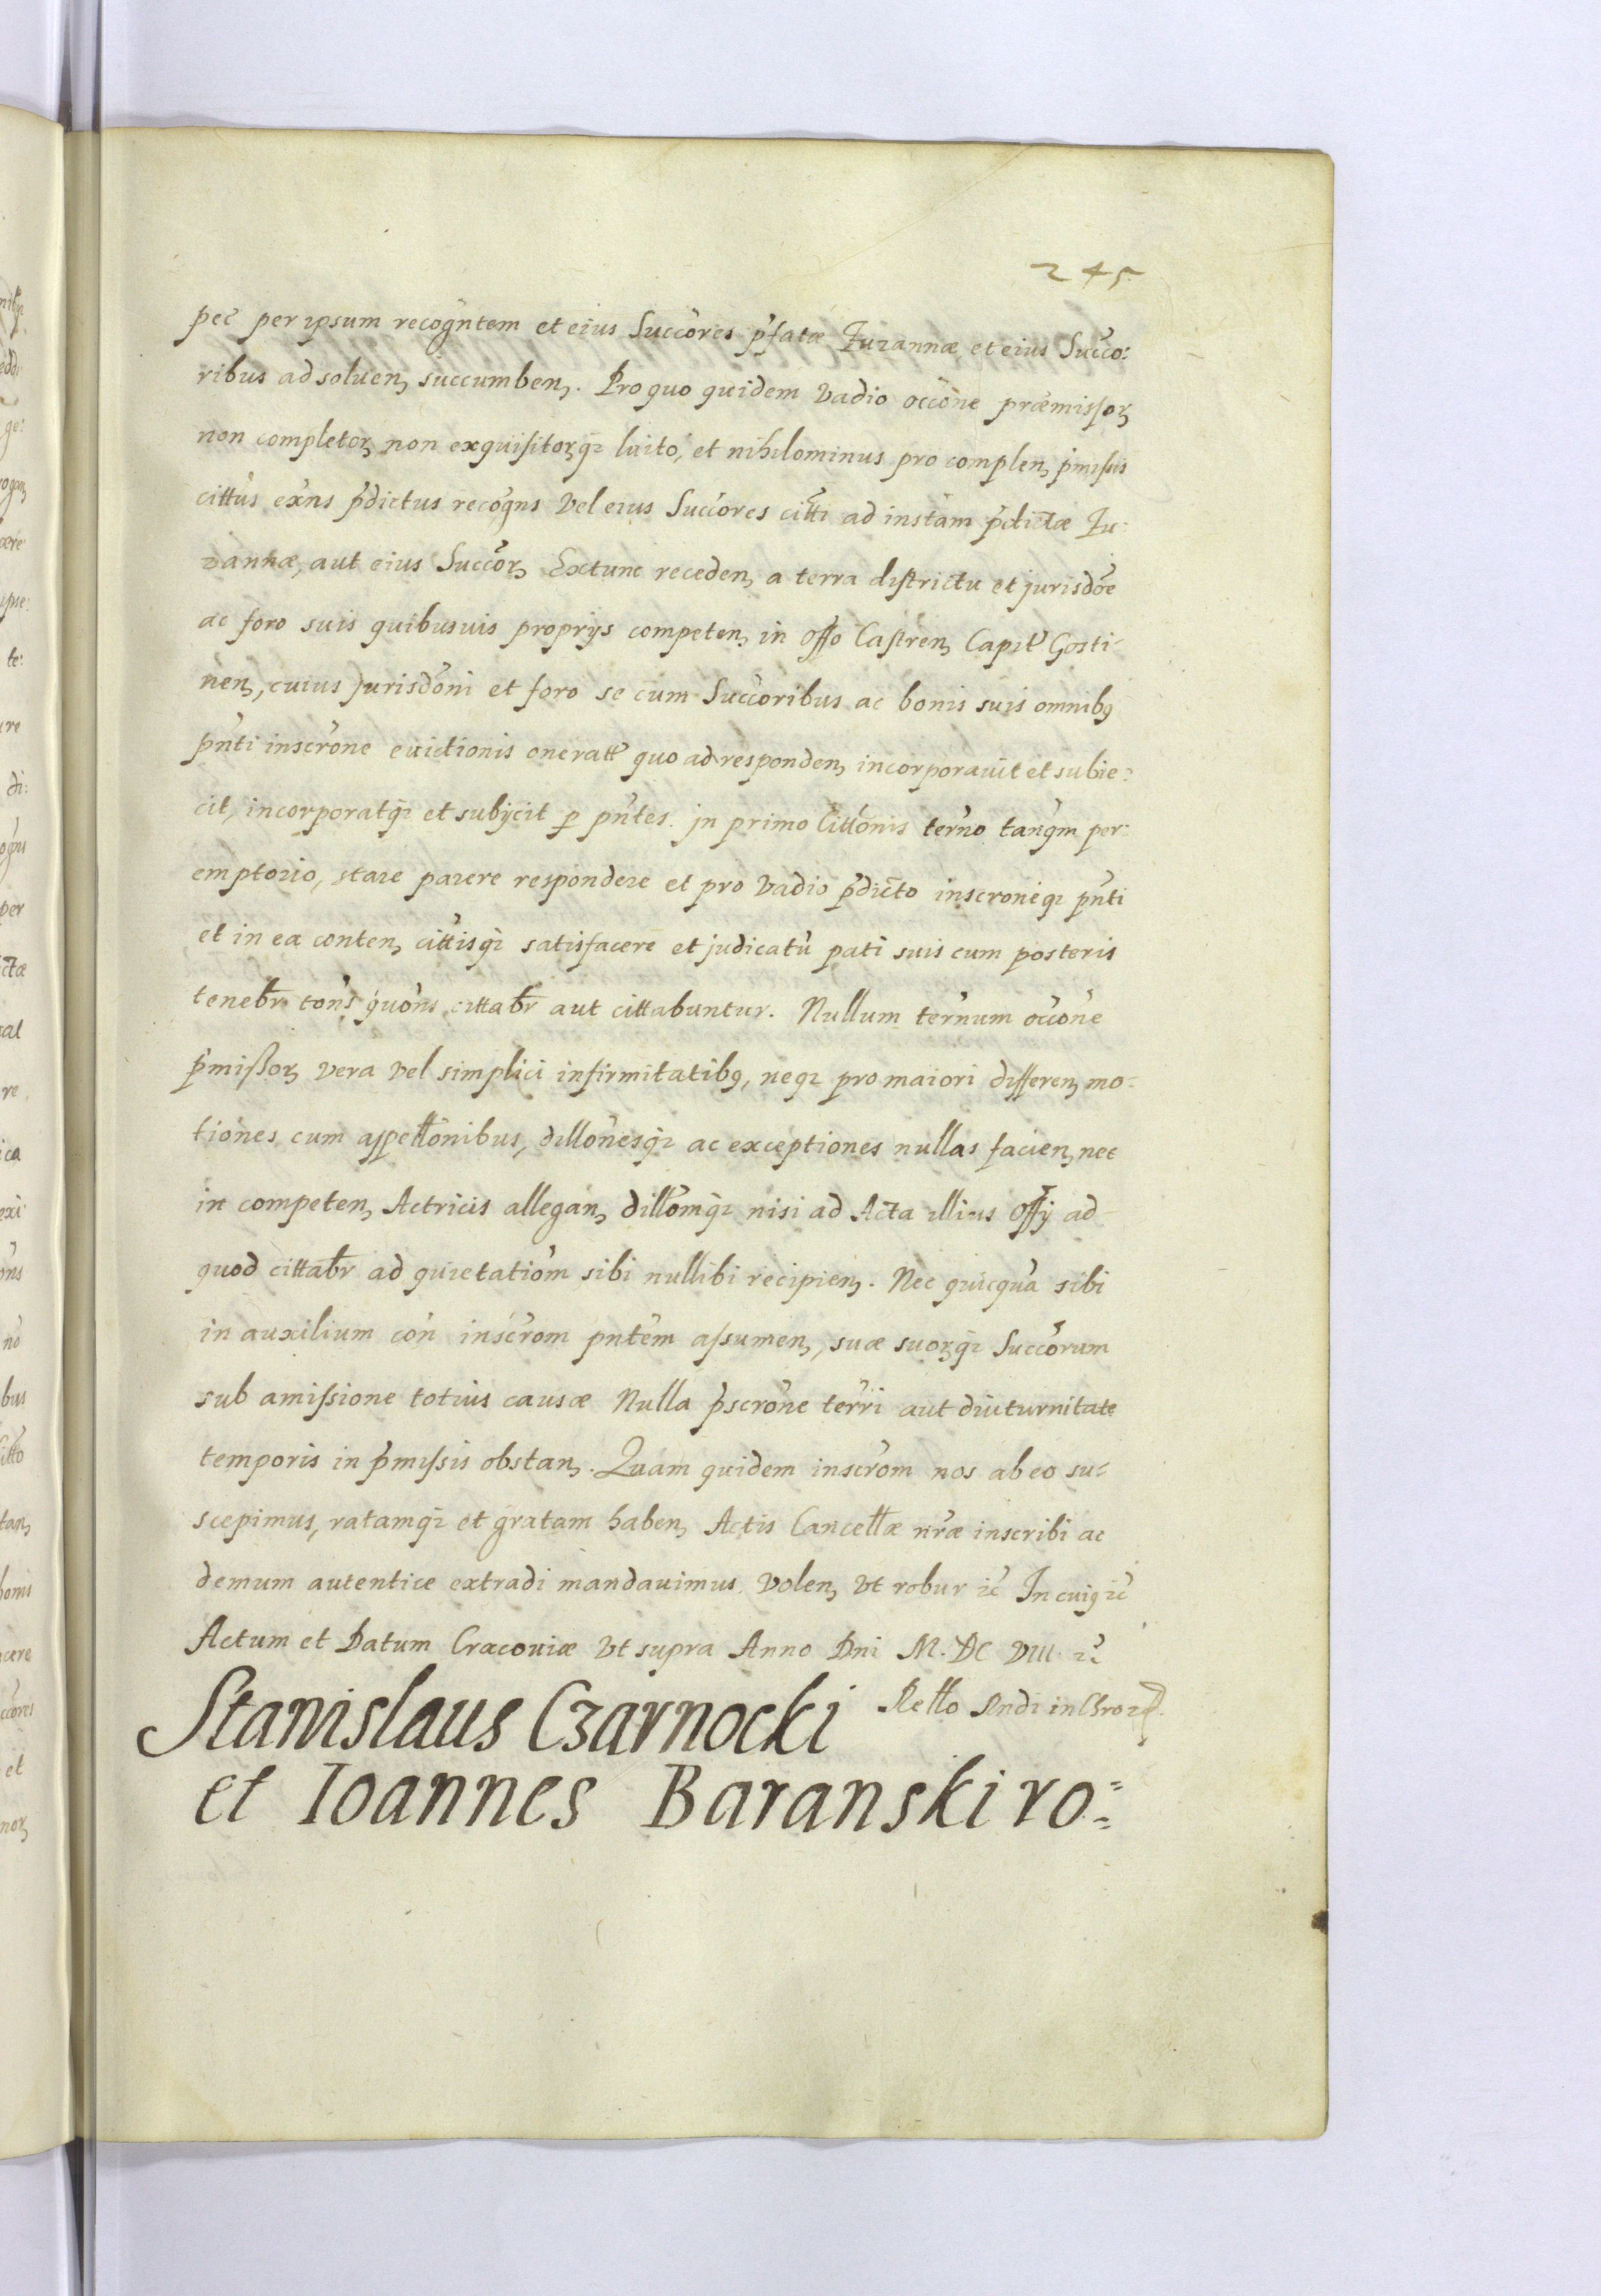 245.
pec per ipsum recogntem et eius Succores pfatæ Zuzannæ et eius Succo:
ribus adsoluen, succumben,. Pro quo quidem Vadio occone præmissoꝝ
non completoꝝ non exquisitoꝝqꝫ luito, et nihilominus pro complen, pmissis
cittus exns pdictus recogns Vel eius Succores citti ad instam pdictæ Zu:
zannæ, aut eius Succoꝝ Extunc receden, a terra districtu et jurisdoe
ac foro suis quibusuis proprijs competen, in Offo Castren, Capit Gosti-
nen, cuius Jurisdoni et foro se cum Succoribus ac bonis suis omnibꝫ
pnti inscrone euictionis oneratt quo ad responden, incorporauit et subie:
cit, incorporatqꝫ et subijcit ꝑ pntes. in primo Cittonis terno tanqm per:
emptorio, stare parere respondere et pro Vadio pdicto inscroneqꝫ pnti
et in ea conten, cittisqꝫ satisfacere et judicatu pati suis cum posteris
tenebr tons quons cittabr aut cittabuntur. Nullum ternum occone
pmissoꝝ vera vel simplici infirmitatibꝫ, neqꝫ pro maiori differen, mo-
tiones cum appettonibus, dillonesqꝫ ac exceptiones nullas facien, nec
in competen, Actricis allegan, dillomqꝫ nisi ad Acta illius Offij ad
quod cittabr ad quietatiom sibi nullibi recipien,. Nec quicqua sibi
in auxilium con inscrom pntem assumen, suæ suoꝝqꝫ Succorum
sub amissione totius causæ Nulla pscrone terri aut diuturnitate
temporis in pmissis obstan,. Quam quidem inscrom nos ab eo su-
scepimus, ratamqꝫ et gratam haben, Actis Cancellæ nræ inscribi ac
demum autentice extradi mandauimus Volen, Vt robur ꝛc In cuiꝫ ꝛc
Actum et Datum Cracouiæ Vt supra Anno Dni M. DC VIII ꝛc
Retto Rndi in Chro ꝛc
Stanislaus Czarnocki
et Ioannes Baranski ro: